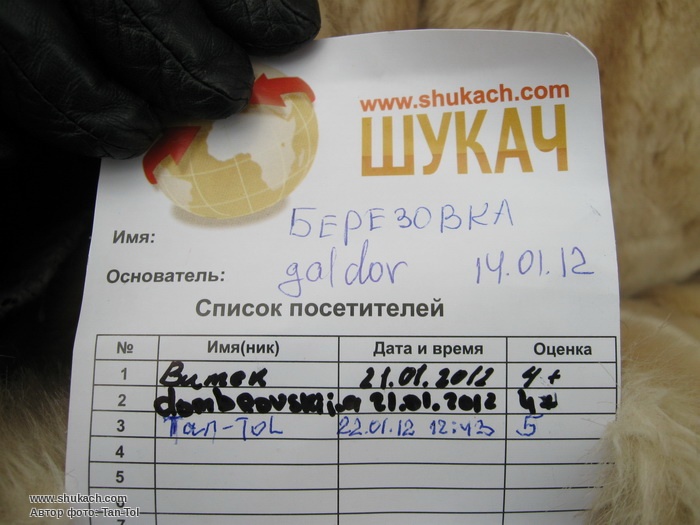 www.shukach.com
ШУКАЧ
Имя: БЕРЕЗОВКА
Основатель: galdor 14.01.12
Список посетителей
№ Имя(ник) Дата и время Оценка
1 Витек 21.01.2012 4+
2 21.01.2012
3 Tan-Tol 22.01.12 12:43 5
4
5
6
7
www.shukach.com
Автор фото- Tan-Tol